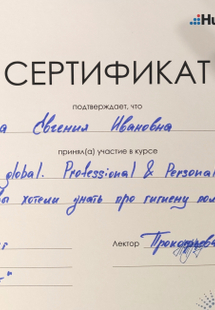 Hu
СЕРТИФИКАТ
подтверждает, что
а Евгения Ивановна
принял(а) участие в курсе
global. Professional & Personal
хотели знать про гигиену пол
Лектор